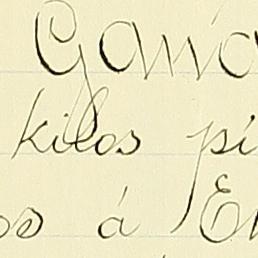 Gana
kilos pi
os á En